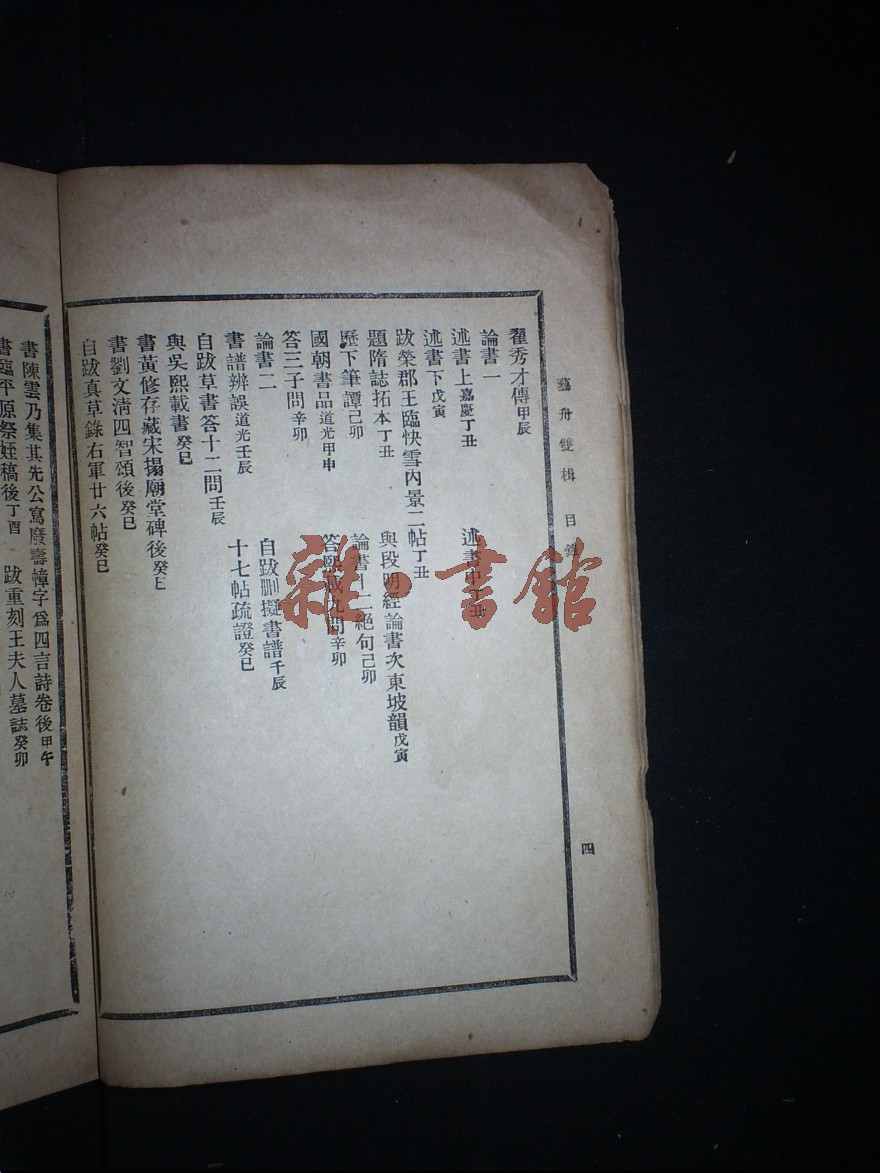 藝舟雙楫 目錄
四
翟秀才傳甲辰
論書一
述書上嘉慶丁丑 述書中丁丑
述書下戊寅
跋榮郡王臨快雪內景二帖丁丑
題隋誌拓本丁丑 與段明經論書次東坡韻戊寅
歷下筆譚己卯 論書十二絕句己卯
國朝書品道光甲申 答熙載九問辛卯
答三子問辛卯
論書二 自跋刪擬書譜壬辰
書譜辨誤道光壬辰 十七帖疏證癸巳
自跋草書答十二問壬辰
與吳熙載書癸巳
書黃修存藏宋搨廟堂碑後癸巳
書劉文清四智頌後癸巳
自跋真草錄右軍廿六帖癸巳
書陳雲乃集其先公寫廢壽幛字爲四言詩卷後甲午
書臨平原祭姪稿後丁酉 跋重刻王夫人墓誌癸卯
雜书館